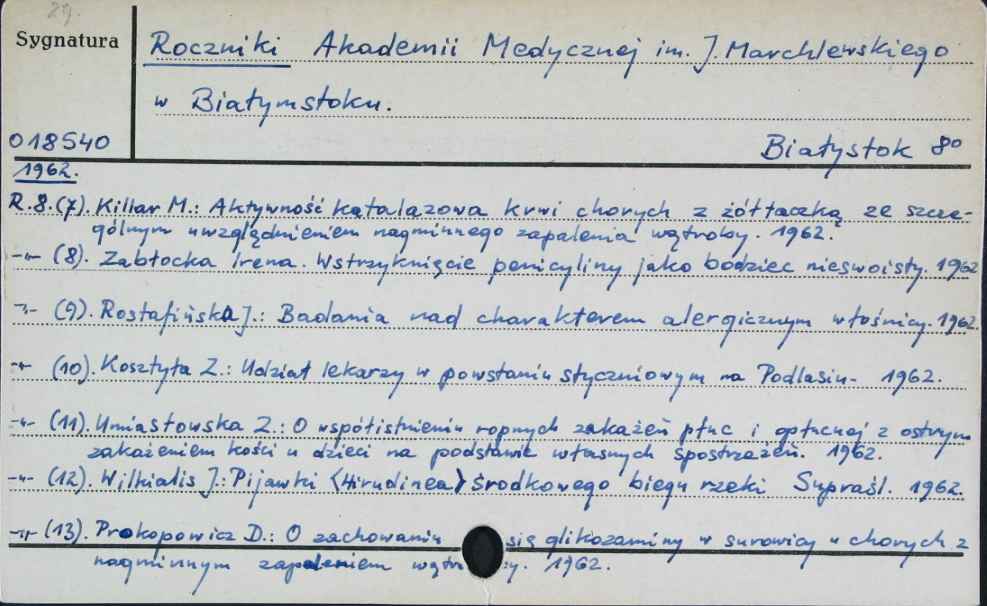 29.
Sygnatura
Roczniki Akademii Medycznej im. J. Marchlewskiego
w Białymstoku.
018540
Białystok 8°
1962.
R.8.(7). Killar M.: Aktywność katalazowa krwi chorych z żółtaczką ze szcze-
gólnym uwzględnieniem nagminnego zapalenia wątroby. 1962.
-"- (8). Zabłocka Irena. Wstrzyknięcie penicyliny jako bodziec nieswoisty. 1962
-"- (9). Rostafińska J.: Badania nad charakterem alergicznym włośnicy. 1962.
-"- (10). Kosztyła Z.: Udział lekarzy w powstaniu styczniowym na Podlasiu- 1962.
-"- (11). Umiastowska Z.: O współistnieniu ropnych zakażeń płuc i opłucnej z ostrym
zakażeniem kości u dzieci na podstawie własnych spostrzeżeń. 1962.
-"- (12). Wilkialis J.: Pijawki (Hirudinea) środkowego biegu rzeki Supraśl. 1962.
-"- (13). Prokopowicz D.: O zachowaniu się glikozaminy w surowicy u chorych z
nagminnym zapaleniem wątr zy. 1962.